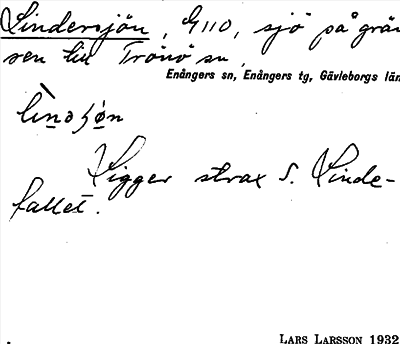 Lindersjön, G110, sjö på grän
sen till Trönö sn,
Enångers sn, Enångers tg, Gävleborgs län
Ligger strax S. Linde-
fallet.
LARS LARSSON 1932